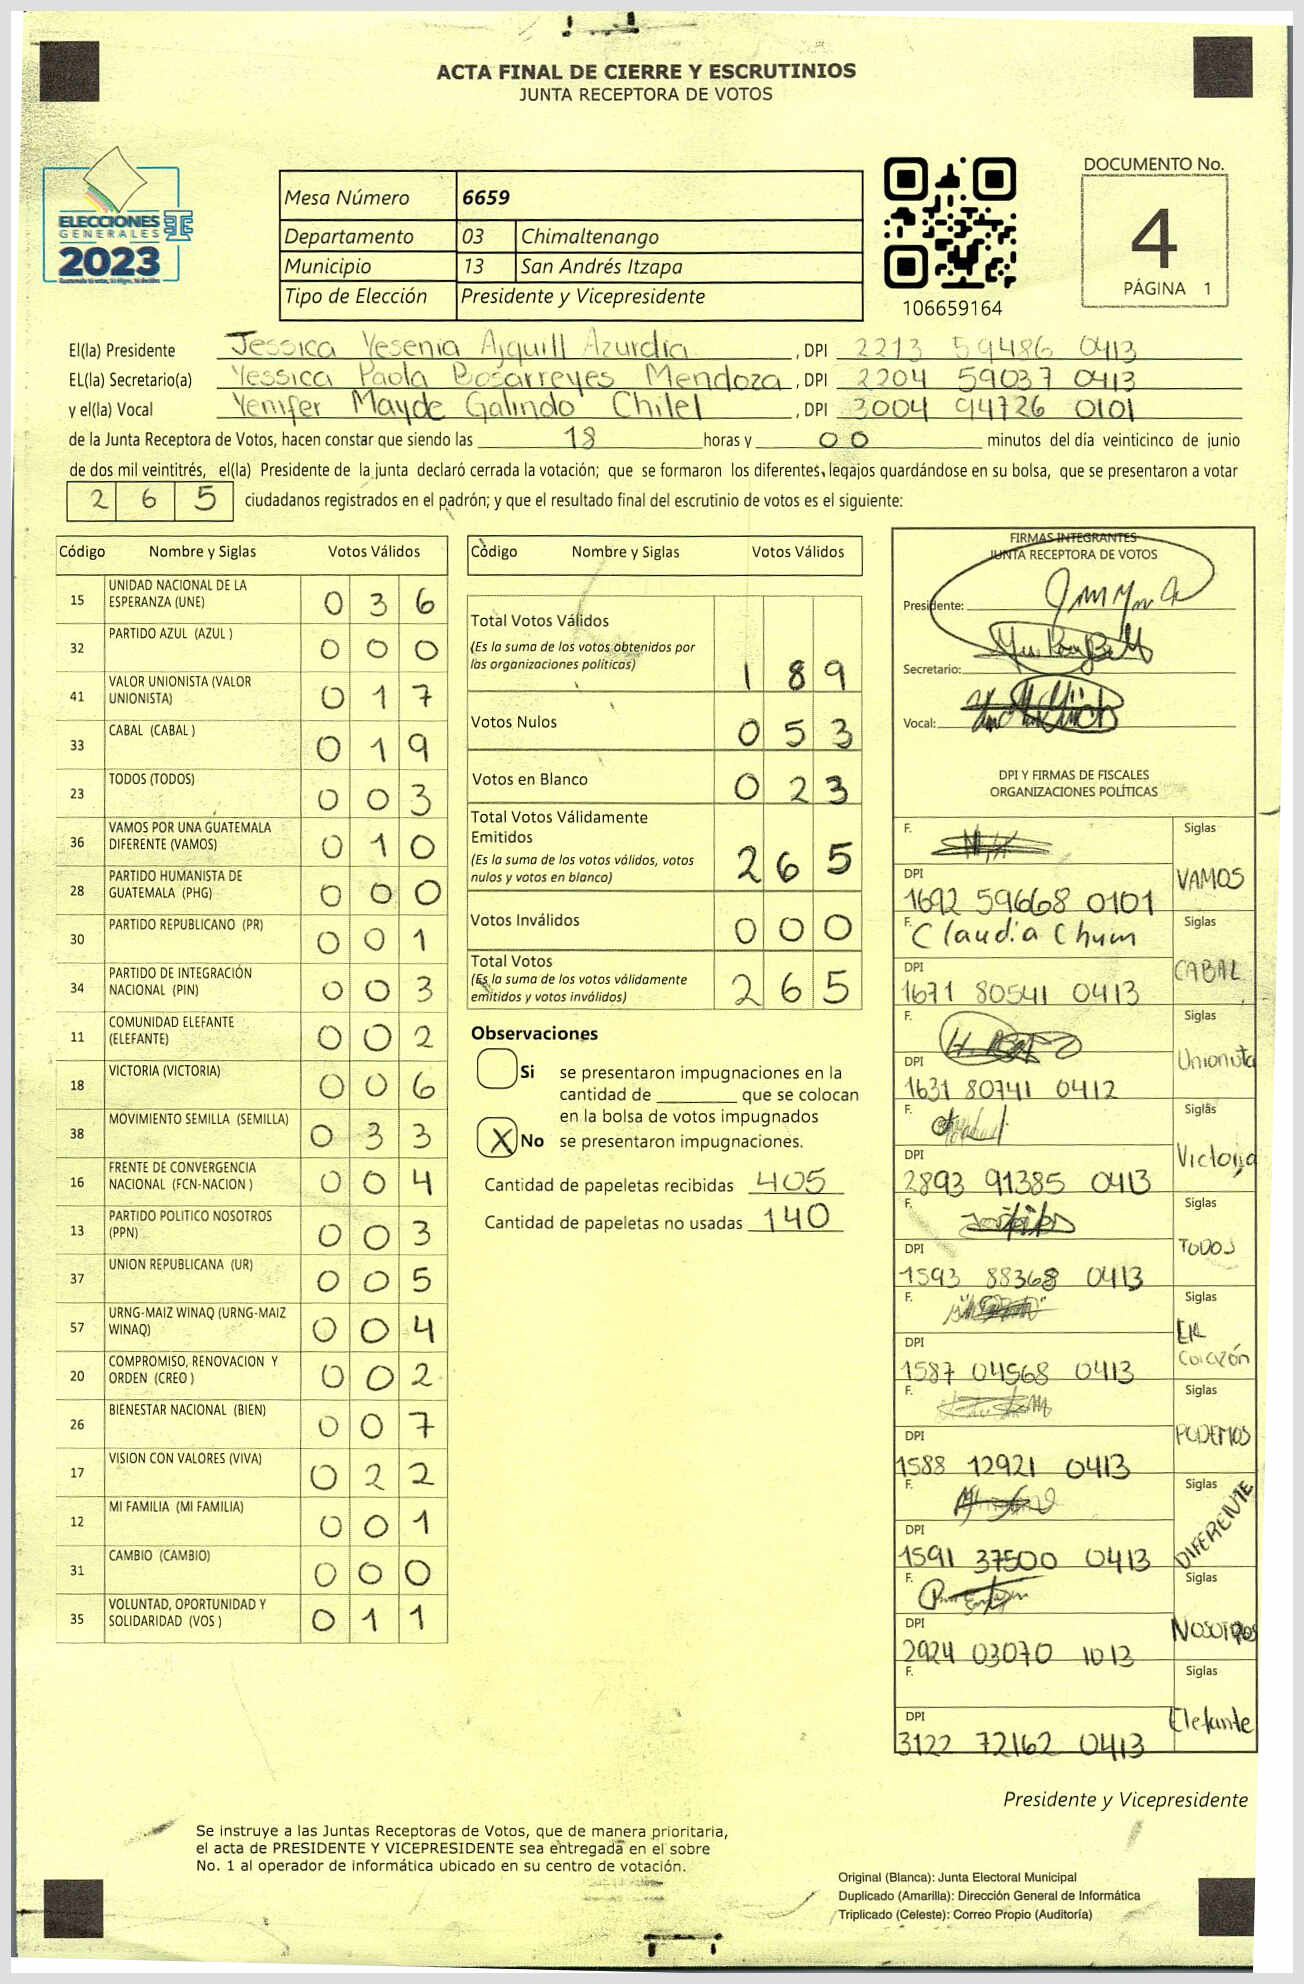 ACTA FINAL DE CIERRE Y ESCRUTINIOS
JUNTA RECEPTORA DE VOTOS
ELECCIONES
GENERALES
2023
Mesa Número 6659
Departamento 03 Chimaltenango
Municipio 13 San Andrés Itzapa
Tipo de Elección Presidente y Vicepresidente
106659164
DOCUMENTO No.
4
PÁGINA 1
El(la) Presidente Jessica Yesenia Ajquill Azurdia, DPI 2213 59486 0413
EL(la) Secretario(a) Yessica Paola Bosarreyes Mendoza, DPI 2204 59037 0413
y el(la) Vocal Yenifer Mayde Galindo Chilel, DPI 3004 94726 0101
de la Junta Receptora de Votos, hacen constar que siendo las 18 horas y 00 minutos del día veinticinco de junio
de dos mil veintitrés, el(la) Presidente de la junta declaró cerrada la votación; que se formaron los diferentes legajos quardándose en su bolsa, que se presentaron a votar
265 ciudadanos registrados en el padrón; y que el resultado final del escrutinio de votos es el siguiente:
Código Nombre y Siglas Votos Válidos
15 UNIDAD NACIONAL DE LA ESPERANZA (UNE) 036
32 PARTIDO AZUL (AZUL ) 000
41 VALOR UNIONISTA (VALOR UNIONISTA) 017
33 CABAL (CABAL ) 019
23 TODOS (TODOS) 003
36 VAMOS POR UNA GUATEMALA DIFERENTE (VAMOS) 010
28 PARTIDO HUMANISTA DE GUATEMALA (PHG) 000
30 PARTIDO REPUBLICANO (PR) 001
34 PARTIDO DE INTEGRACIÓN NACIONAL (PIN) 003
11 COMUNIDAD ELEFANTE (ELEFANTE) 002
18 VICTORIA (VICTORIA) 006
38 MOVIMIENTO SEMILLA (SEMILLA) 033
16 FRENTE DE CONVERGENCIA NACIONAL (FCN-NACION ) 004
13 PARTIDO POLITICO NOSOTROS (PPN) 003
37 UNION REPUBLICANA (UR) 005
57 URNG-MAIZ WINAQ (URNG-MAIZ WINAQ) 004
20 COMPROMISO, RENOVACION Y ORDEN (CREO ) 002
26 BIENESTAR NACIONAL (BIEN) 007
17 VISION CON VALORES (VIVA) 022
12 MI FAMILIA (MI FAMILIA) 001
31 CAMBIO (CAMBIO) 000
35 VOLUNTAD, OPORTUNIDAD Y SOLIDARIDAD (VOS ) 011
Código Nombre y Siglas Votos Válidos
Total Votos Válidos
(Es la suma de los votos obtenidos por
las organizaciones políticas) 189
Votos Nulos 053
Votos en Blanco 023
Total Votos Válidamente
Emitidos
(Es la suma de los votos válidos, votos
nulos y votos en blanco) 265
Votos Inválidos 000
Total Votos
(Es la suma de los votos válidamente
emitidos y votos inválidos) 265
Observaciones
Si se presentaron impugnaciones en la
cantidad de ________ que se colocan
en la bolsa de votos impugnados
X No se presentaron impugnaciones.
Cantidad de papeletas recibidas 405
Cantidad de papeletas no usadas 140
FIRMAS INTEGRANTES
JUNTA RECEPTORA DE VOTOS
Presidente:
Secretario:
Vocal:
DPI Y FIRMAS DE FISCALES
ORGANIZACIONES POLÍTICAS
F. Siglas
DPI VAMOS
1692 59668 0101
F. Claudia Chum Siglas
DPI CABAL
1671 80541 0413
F. Siglas
DPI Unionista
1631 80741 0412
F. Siglas
DPI Victoria
2893 91385 0413
F. Siglas
DPI TODOS
1593 88368 0413
F. Siglas
DPI Corazón
1587 04568 0413
F. Siglas
DPI PODEMOS
1588 12921 0413
F. Siglas
DPI DIFERENTE
1591 37500 0413
F. Siglas
DPI NOSOTROS
2924 03070 1013
F. Siglas
DPI Elefante
3122 72162 0413
Presidente y Vicepresidente
Se instruye a las Juntas Receptoras de Votos, que de manera prioritaria,
el acta de PRESIDENTE Y VICEPRESIDENTE sea entregada en el sobre
No. 1 al operador de informática ubicado en su centro de votación.
Original (Blanca): Junta Electoral Municipal
Duplicado (Amarilla): Dirección General de Informática
Triplicado (Celeste): Correo Propio (Auditoría)